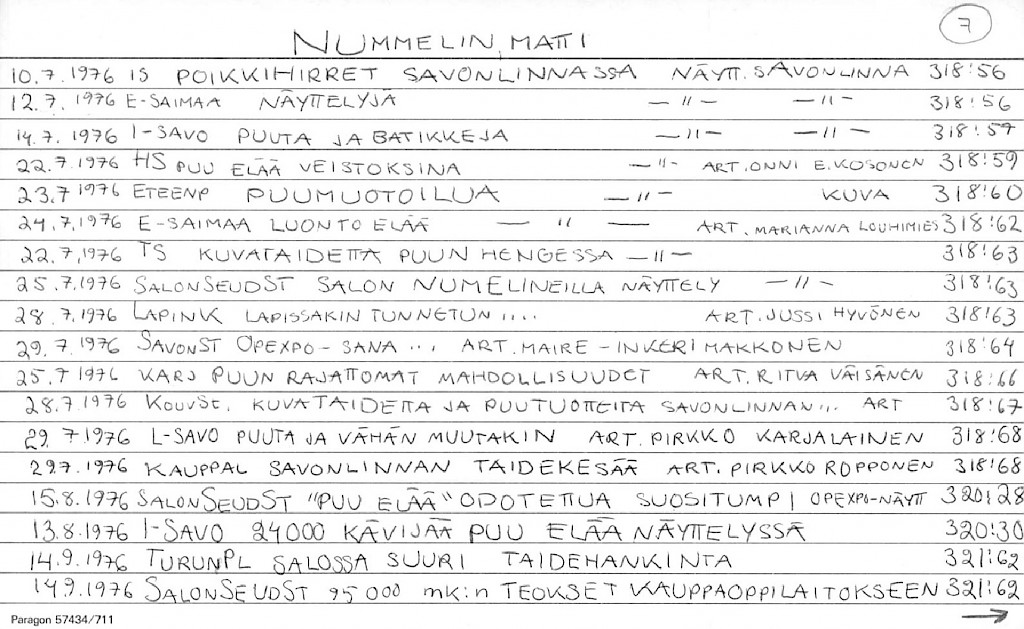 7
NUMMELIN, MATTI
10.7.1976 IS POIKKIHIRRET SAVONLINNASSA NÄYTT. SAVONLINNA 318:56
12.7.1976 E-SAIMAA NÄYTTELYJÄ — 〃 — — 〃 — 318:56
14.7.1976 I-SAVO PUUTA JA BATIKKEJA — 〃 — — 〃 — 318:57
22.7.1976 HS PUU ELÄÄ VEISTOKSINA — 〃 - ART. ONNI E. KOSONEN 318:59
23.7 1976 ETEENP PUUMUOTOILUA — 〃 — KUVA 318:60
24.7.1976 E-SAIMAA LUONTO ELÄÄ — 〃 — ART. MARIANNA LOUHIMIES 318:62
22.7.1976 TS KUVATAIDETTA PUUN HENGESSA — 〃 — 318:63
25.7.1976 SALONSEUDST SALON NUMELINEILLA NÄYTTELY — 〃 — 318:63
28.7.1976 LAPINK LAPISSAKIN TUNNETUN .... ART. JUSSI HYVÖNEN 318:63
29.7.1976 SAVONST OPEXPO-SANA ... ART. MAIRE-INKERI MAKKONEN 318:64
25.7 1976 KARJ PUUN RAJATTOMAT MAHDOLLISUUDET ART. RITVA VÄISÄNEN 318:66
28.7.1976 KOUVST. KUVATAIDETTA JA PUUTUOTTEITA SAVONLINNAN ... ART 318:67
29.7.1976 L-SAVO PUUTA JA VÄHÄN MUUTAKIN ART. PIRKKO KARJALAINEN 318:68
297.1976 KAUPPAL SAVONLINNAN TAIDEKESÄÄ ART. PIRKKO ROPPONEN 318:68
15.8.1976 SALONSEUDST "PUU ELÄÄ" ODOTETTUA SUOSITUMPI OPEXPO-NÄYTT 320:28
13.8.1976 I-SAVO 24000 KÄVIJÄÄ PUU ELÄÄ NÄYTTELYSSÄ 320:30
14.9.1976 TURUNPL SALOSSA SUURI TAIDEHANKINTA 321:62
149.1976 SALONSEUDST 95000 mk:n TEOKSET KAUPPAOPPILAITOKSEEN 321:62
→
Paragon 57434/711